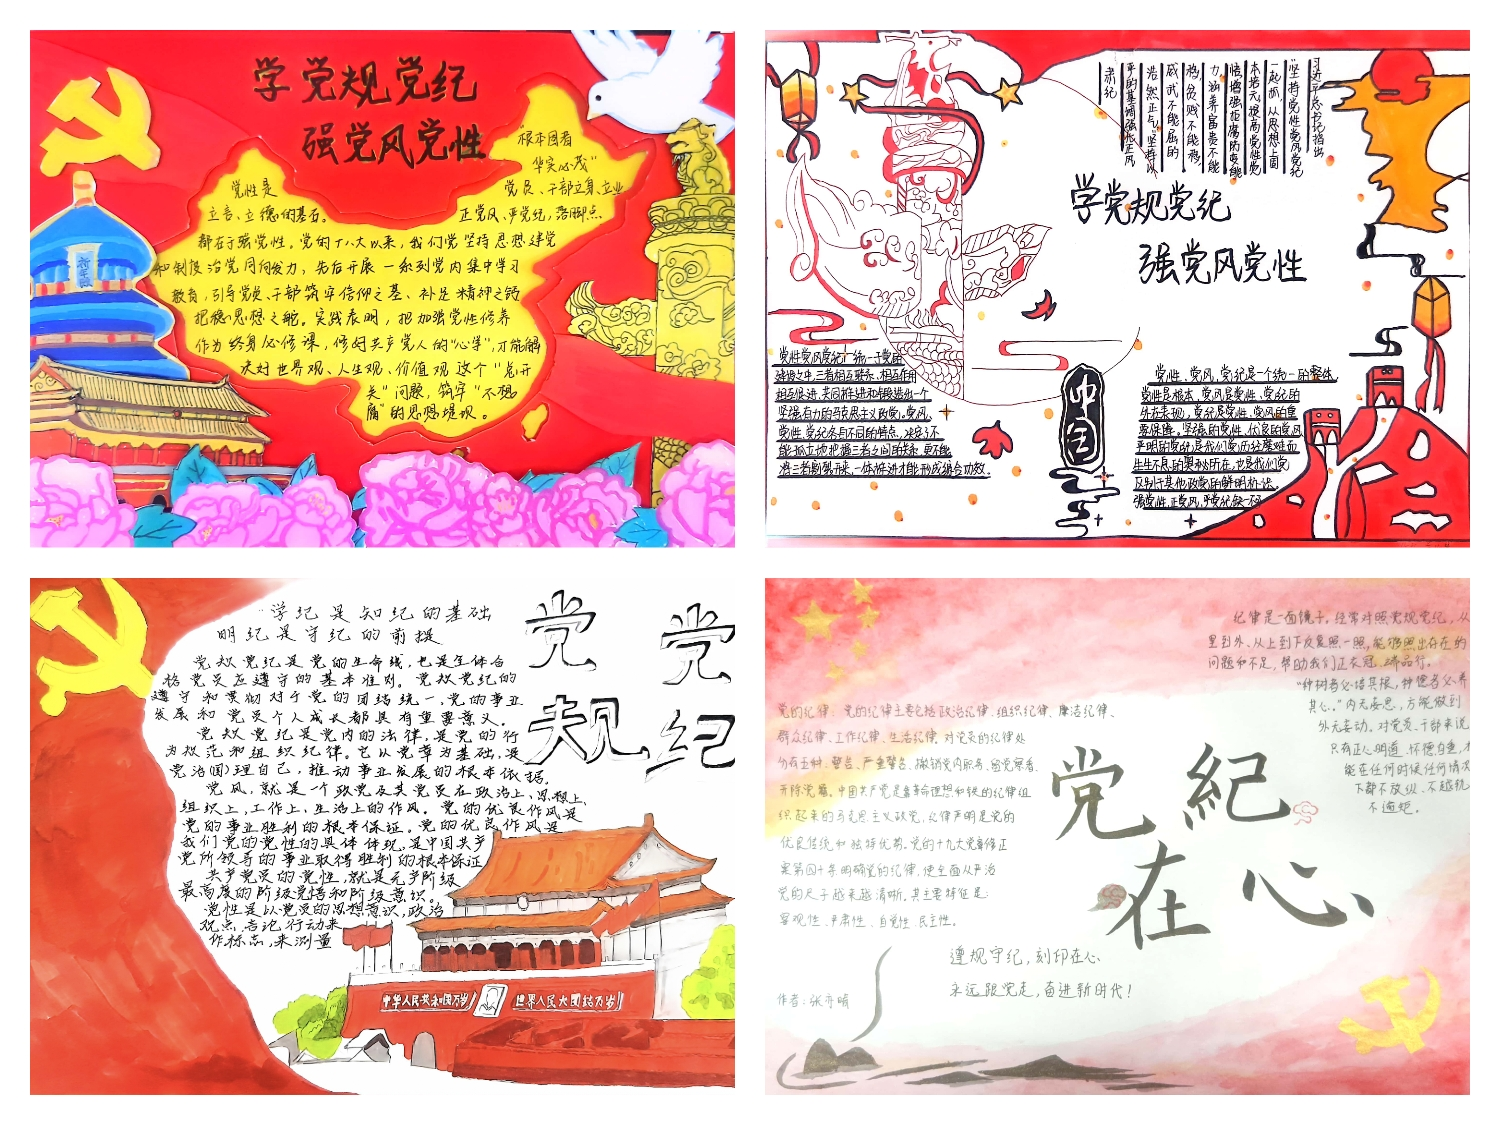 学党规党纪
强党风党性
"根本固者
华实必茂"
党员、干部立身、立业
正党风、严党纪,落脚点
党性是
立言、立德的基石。
都在于强党性。党的十八大以来,我们党坚持思想建党
和制度治党同向发力,先后开展一系列党内集中学习
教育,引导党员、干部筑牢信仰之基、补足精神之钙
把稳思想之舵。实践表明,把加强党性修养
作为终身必修课,修好共产党人的"心学",才能解
决好世界观、人生观、价值观这个"总开
关"问题,筑牢"不想
腐"的思想堤坝。
祈年殿
习近平总书记指出
"坚持党性党风党纪
一起抓,从思想上固
本培元,提高党性觉
悟,增强拒腐防变能
力,涵养富贵不能
淫、贫贱不能移、
威武不能屈的
浩然正气"坚持以
严的基调强化正风
肃纪
学党规党纪
强党风党性
党性党风党纪,统一于党的
建设之中,三者相互联系、相互作用
相互促进,共同推进和锻造出一个
坚强有力的马克思主义政党。党风、
党性、党纪各有不同的特点,决定了不
能孤立地把握三者之间的关系,更不能
将三者割裂开来,一体推进才能形成综合功效。
中国
党性、党风、党纪是一个统一的整体,
党性是根本,党风是党性、党纪的
外在表现,党纪是党性、党风的重
要保障。坚强的党性、优良的党风
严明的党纪是我们党历经磨难而
生生不息的奥秘所在,也是我们党
区别于其他政党的鲜明标识。
强党性、正党风、严党纪缺一不可
"学纪是知纪的基础
明纪是守纪的前提
党党
规纪
党规党纪是党的生命线,也是全体合
格党员应遵守的基本准则。党规党纪的
遵守和贯彻对于党的团结统一,党的事业
发展和党员个人成长都具有重要意义。
党规党纪是党内的法律,是党的行
为规范和组织纪律。它从党章为基础,是
党治国理自己,推动事业发展的根本依据。
党风,就是一个政党及其党员在政治上、思想上、
组织上,工作上,生活上的作风。党的优良作风是
党的事业胜利的根本保证。党的优良作风是
我们党的党性的具体体现,是中国共产
党所领导的事业取得胜利的根本保证
共产党员的党性,就是无产阶级
最高度的阶级觉悟和阶级意识。
党性是以党员的思想意识,政治
观点,言论行动来
作标志,来测量
中华人民共和国万岁
世界人民大团结万岁
纪律是一面镜子,经常对照党规党纪,从
里到外、从上到下反复照一照,能够照出存在的
问题和不足,帮助我们正衣冠、端品行。
"种树者必培其根,种德者必养
其心。"内无妄思,方能做到
外无妄动。对党员、干部来说
只有正心明道、怀德自重,才
能在任何时候任何情况
下都不放纵、不越轨
不逾矩。
党的纪律:党的纪律主要包括政治纪律、组织纪律、廉洁纪律、
群众纪律、工作纪律、生活纪律。对党员的纪律处
分有五种:警告、严重警告、撤销党内职务、留党察看、
开除党籍。中国共产党是靠革命理想和铁的纪律组
织起来的马克思主义政党,纪律严明是党的
优良传统和独特优势。党的十九大党章修正
案第四十条明确党的纪律,使全面从严治
党的尺子越来越清晰。其主要特征是:
客观性、严肃性、自觉性、民主性。
党紀
在心
遵规守纪,刻印在心
永远跟党走,奋进新时代!
作者:张